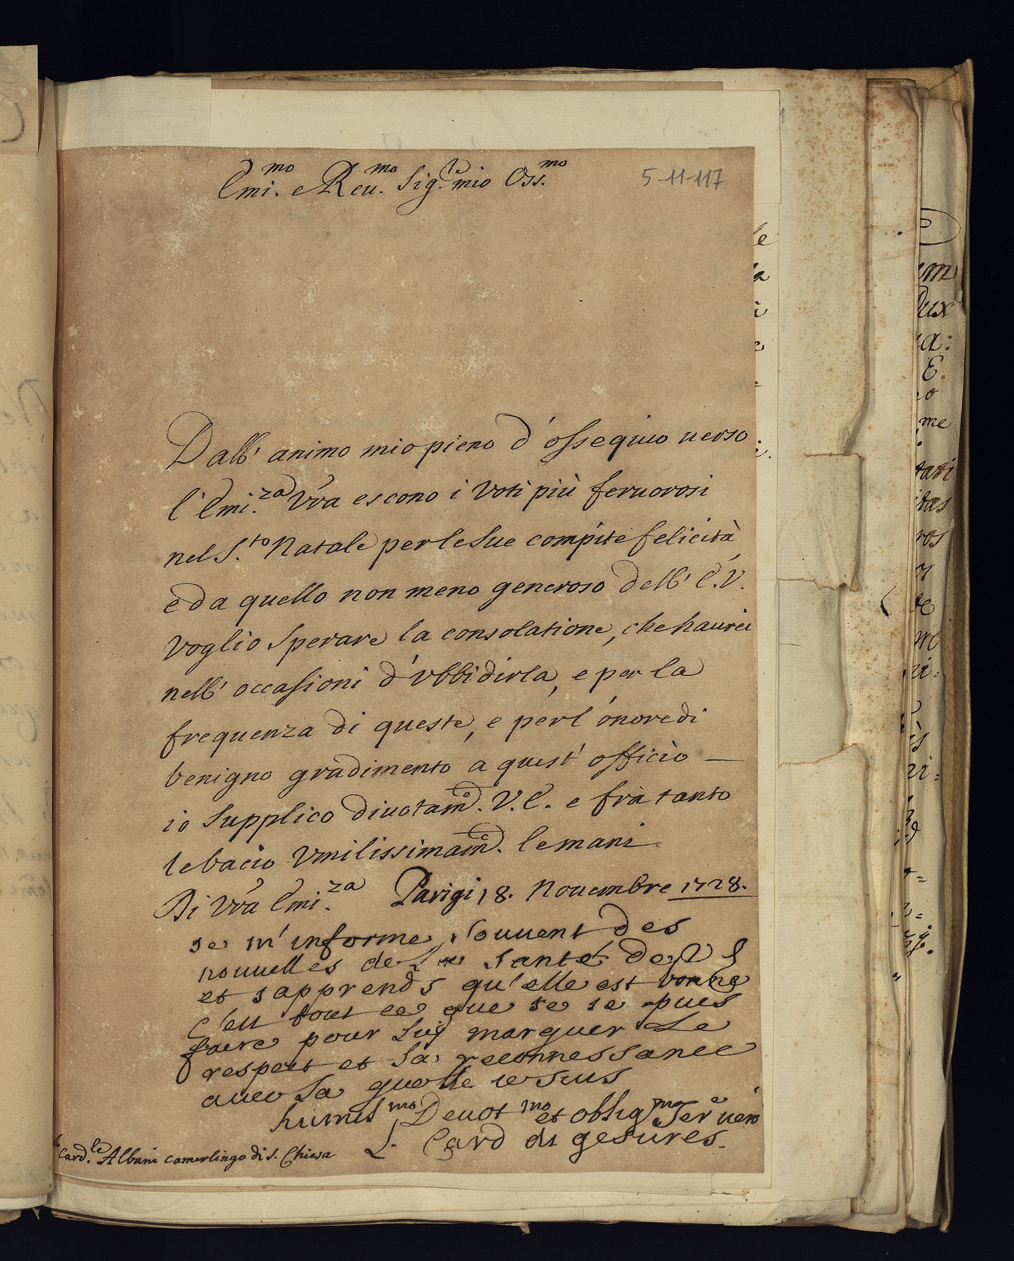 Emi.mo e Reu.mo Sig.re mio Oss.mo
5-11-117
Dall' animo mio pieno d'ossequio uerso
l'Emi.za Vra escono i Voti più feruorosi
nel S.to Natale per le Sue compite felicità
e da quello non meno generoso dell' E.V.
voglio Sperare la consolatione, che haurei
nell' occasioni d'Vbbidirla, e per la
frequenza di queste, e per l'onore di
benigno gradimento à quest' officio —
io Supplico diuotam.e V.E. e frà tanto
le bacio Vmilissimam.e le mani
Di Vra Emi.za Parigi 18. Nouembre 1728.
Je m'informe souuent des
nouuelles de La santé de V E
et japprends qu'elle est bonne
C'est tout ce que je se puis
faire pour Luy marquer Le
respect et La reconnessance
auec La quelle je suis
humil.mo Deuot.mo et oblig.mo Ser.e uero
L. Card di gesures.
Card.le Albani camerlingo di S. Chiesa